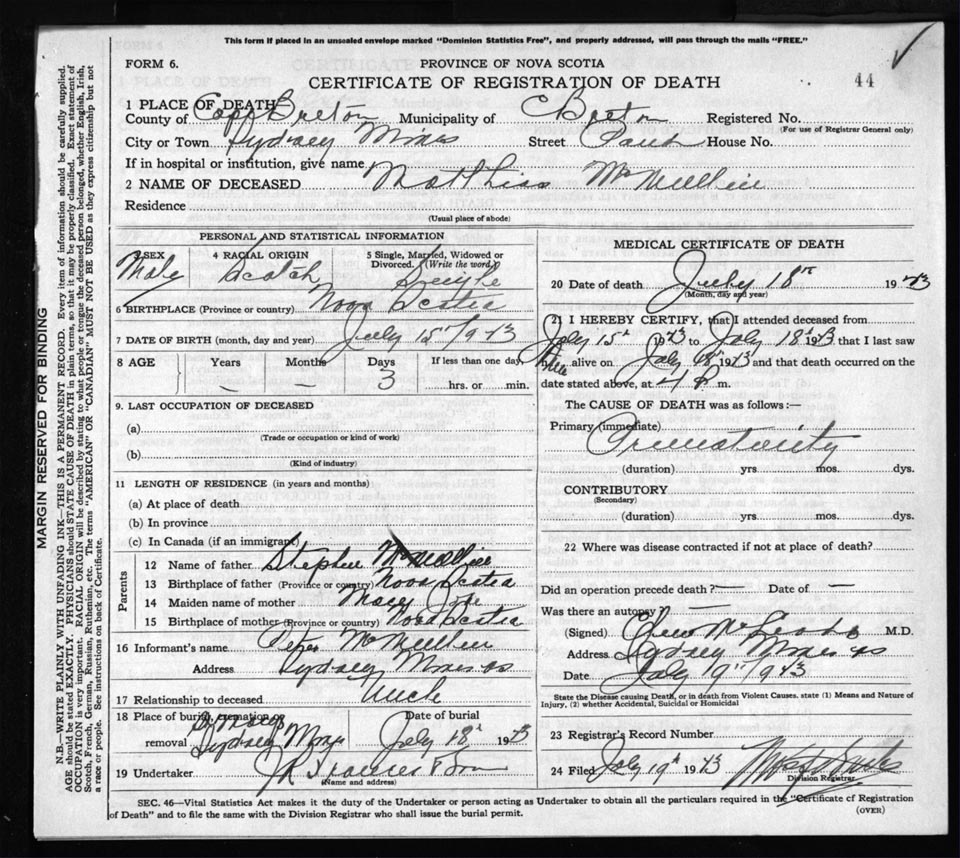 This form if placed in an unsealed envelope marked "Dominion Statistics Free", and properly addressed, will pass through the mails "FREE."
FORM 6.
PROVINCE OF NOVA SCOTIA
CERTIFICATE OF REGISTRATION OF DEATH
44
1 PLACE OF DEATH
County of Cape Breton Municipality of C Breton Registered No.
(For use of Registrar General only)
City or Town Sydney Mines Street House No.
If in hospital or institution, give name
2 NAME OF DECEASED Matthias McMullin
Residence
(Usual place of abode)
PERSONAL AND STATISTICAL INFORMATION
3 SEX Male
4 RACIAL ORIGIN Scotch
5 Single, Married, Widowed or Divorced. (Write the word) Single
6 BIRTHPLACE (Province or country) Nova Scotia
7 DATE OF BIRTH (month, day and year) July 15th 1943
8 AGE Years Months — Days 3 If less than one day hrs. or min.
9. LAST OCCUPATION OF DECEASED
(a)
(Trade or occupation or kind of work)
(b)
(Kind of industry)
11 LENGTH OF RESIDENCE (in years and months)
(a) At place of death
(b) In province
(c) In Canada (if an immigrant)
Parents
12 Name of father Stephen McMullin
13 Birthplace of father (Province or country) Nova Scotia
14 Maiden name of mother Mary
15 Birthplace of mother (Province or country) Nova Scotia
16 Informant's name Peter McMullin
Address Sydney Mines NS
17 Relationship to deceased Uncle
18 Place of burial, cremation or removal Sydney Mines Date of burial July 18th 1943
19 Undertaker
(Name and address)
MEDICAL CERTIFICATE OF DEATH
20 Date of death July 18th 1943
(Month, day and year)
21 I HEREBY CERTIFY, that I attended deceased from
July 15th 1943 to July 18th 1943 that I last saw
him alive on July 18th 1943 and that death occurred on the
date stated above, at 4 P m.
The CAUSE OF DEATH was as follows:—
Primary (immediate)
Prematurity
(duration) yrs. mos. dys.
CONTRIBUTORY
(Secondary)
(duration) yrs. mos. dys.
22 Where was disease contracted if not at place of death?
Did an operation precede death? — Date of —
Was there an autopsy? —
(Signed) M.D.
Address Sydney Mines NS
Date July 19th 1943
State the Disease causing Death, or in death from Violent Causes. state (1) Means and Nature of
Injury, (2) whether Accidental, Suicidal or Homicidal
23 Registrar's Record Number
24 Filed July 19th 1943
Division Registrar
SEC. 46—Vital Statistics Act makes it the duty of the Undertaker or person acting as Undertaker to obtain all the particulars required in the "Certificate of Registration
of Death" and to file the same with the Division Registrar who shall issue the burial permit.
(OVER)
MARGIN RESERVED FOR BINDING
N.B.—WRITE PLAINLY WITH UNFADING INK—THIS IS A PERMANENT RECORD. Every item of information should be carefully supplied.
AGE should be stated EXACTLY. PHYSICIANS should STATE CAUSE OF DEATH in plain terms, so that it may be properly classified. Exact statement of
OCCUPATION is very important. RACIAL ORIGIN will be described by stating to what people or tongue the deceased person belonged, whether English, Irish,
Scotch, French, German, Russian, Ruthenian, etc. The terms "AMERICAN" or "CANADIAN" MUST NOT BE USED as they express citizenship but not
a race or people. See instructions on back of Certificate.